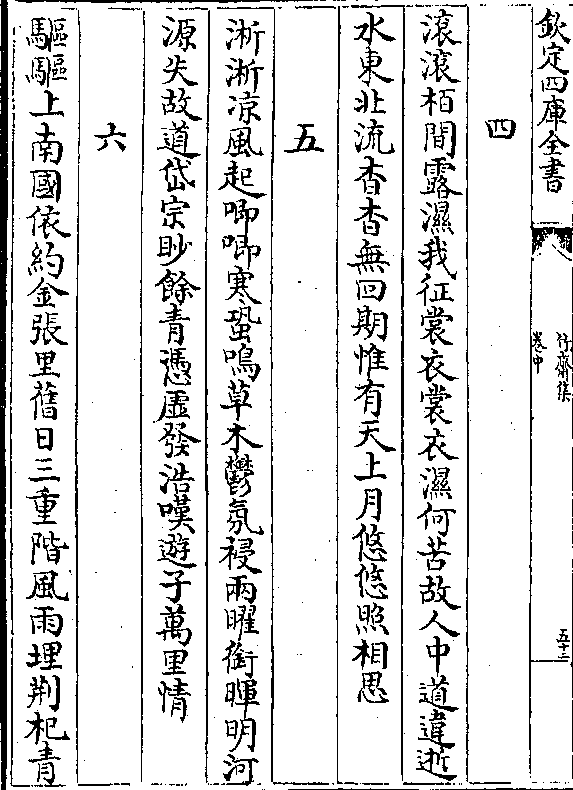 欽定四庫全書
竹齋集
卷中
五十三
四
滚滚栢間露濕我征裳衣裳衣濕何苦故人中道違逝
水東北流杳杳無回期惟有天上月悠悠照相思
五
淅淅凉風起唧唧寒蛩鳴草木鬱氛祲兩曜銜暉明河
源失故道岱宗眇餘青憑虛發浩嘆遊子萬里情
六
驅驅上南國依約金張里舊日三重階風雨埋荆杞青